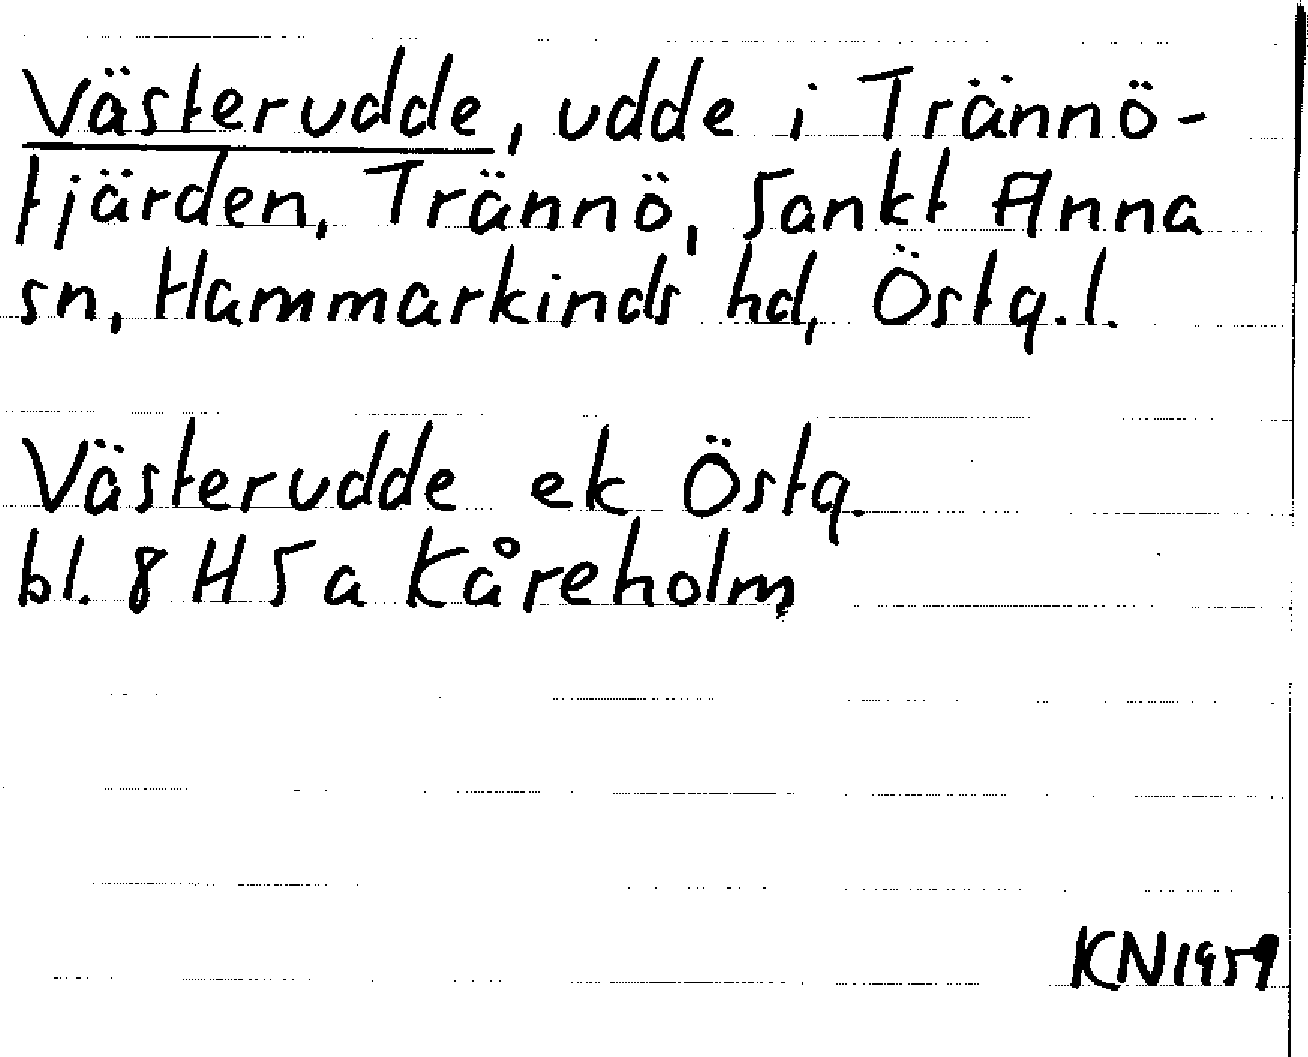 Västerudde, udde i Trännö-
fjärden, Trännö, Sankt Anna
sn, Hammarkinds hd, Östg.l.
Västerudde ek Östg.
bl. 8 H 5 a Kåreholm
KN1959